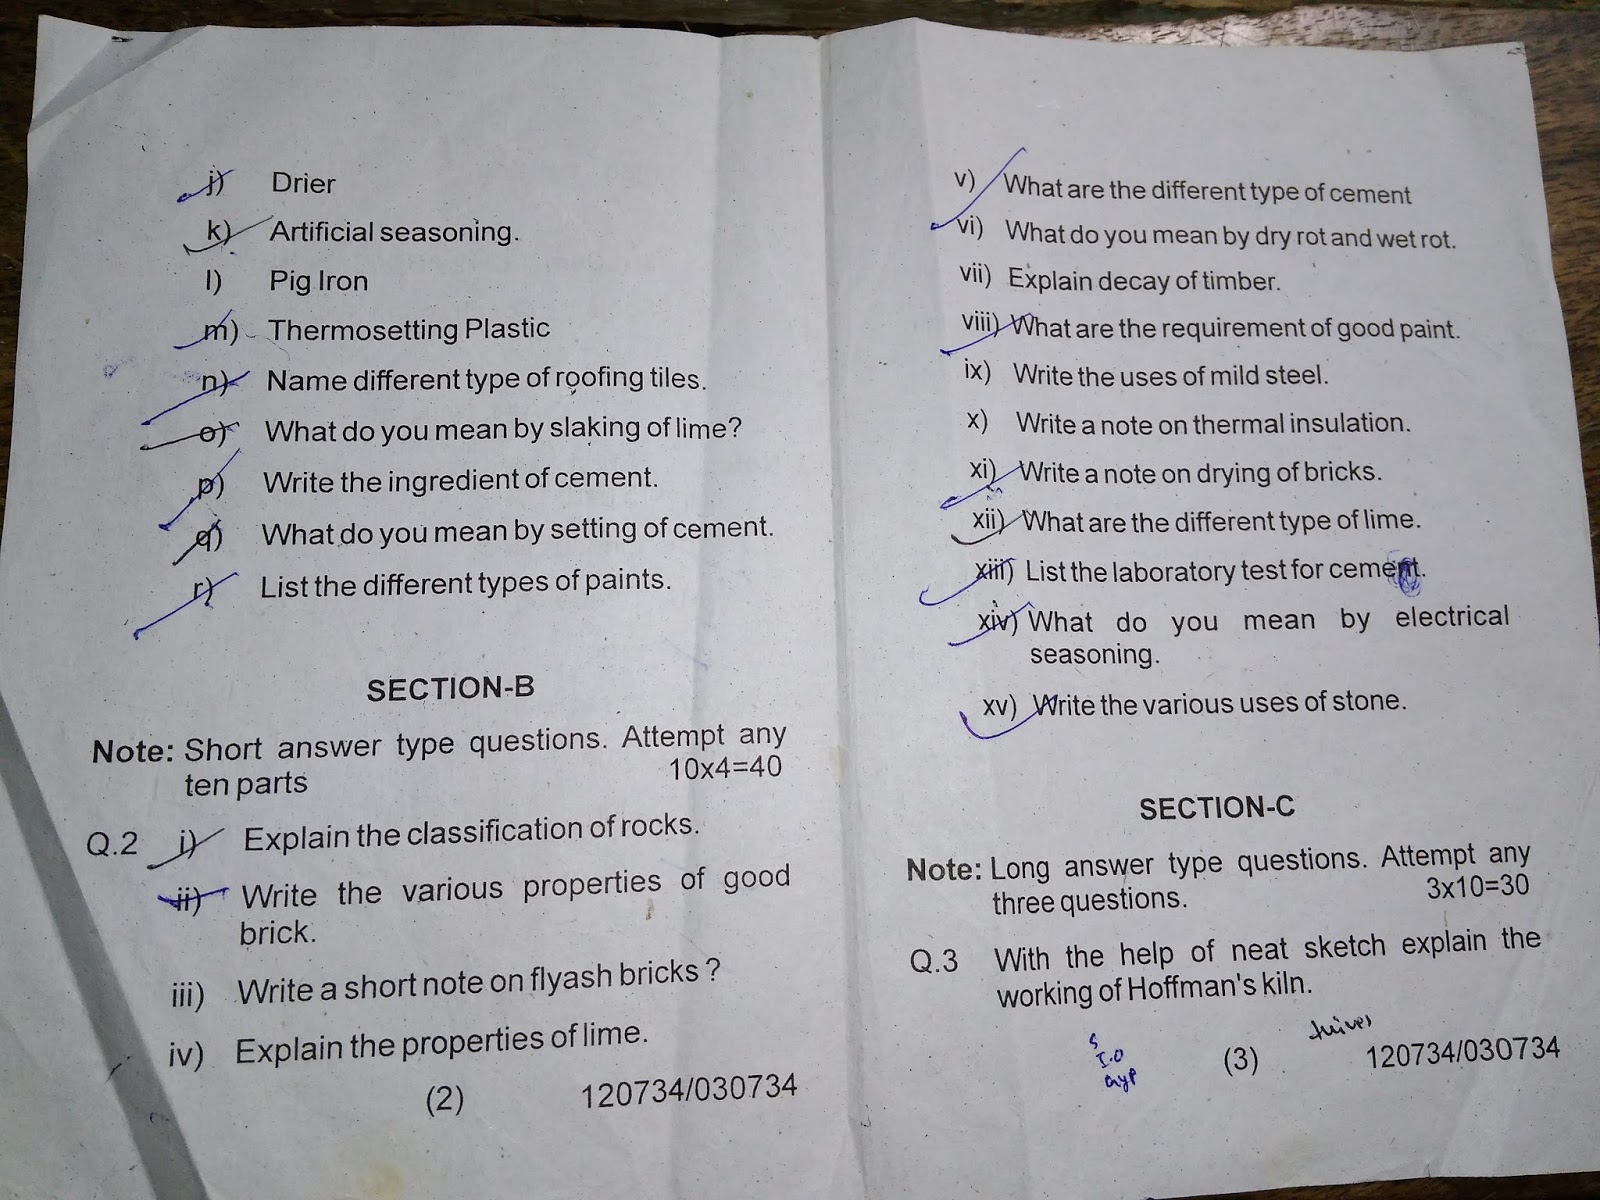 j) Drier
k) Artificial seasoning.
l) Pig Iron
m) Thermosetting Plastic
n) Name different type of roofing tiles.
o) What do you mean by slaking of lime?
p) Write the ingredient of cement.
q) What do you mean by setting of cement.
r) List the different types of paints.
SECTION-B
Note: Short answer type questions. Attempt any
ten parts 10x4=40
Q.2 i) Explain the classification of rocks.
ii) Write the various properties of good
brick.
iii) Write a short note on flyash bricks ?
iv) Explain the properties of lime.
(2) 120734/030734
v) What are the different type of cement
vi) What do you mean by dry rot and wet rot.
vii) Explain decay of timber.
viii) What are the requirement of good paint.
ix) Write the uses of mild steel.
x) Write a note on thermal insulation.
xi) Write a note on drying of bricks.
xii) What are the different type of lime.
xiii) List the laboratory test for cement.
xiv) What do you mean by electrical
seasoning.
xv) Write the various uses of stone.
SECTION-C
Note: Long answer type questions. Attempt any
three questions. 3x10=30
Q.3 With the help of neat sketch explain the
working of Hoffman's kiln.
S
I.O
Gyp
(3) 120734/030734